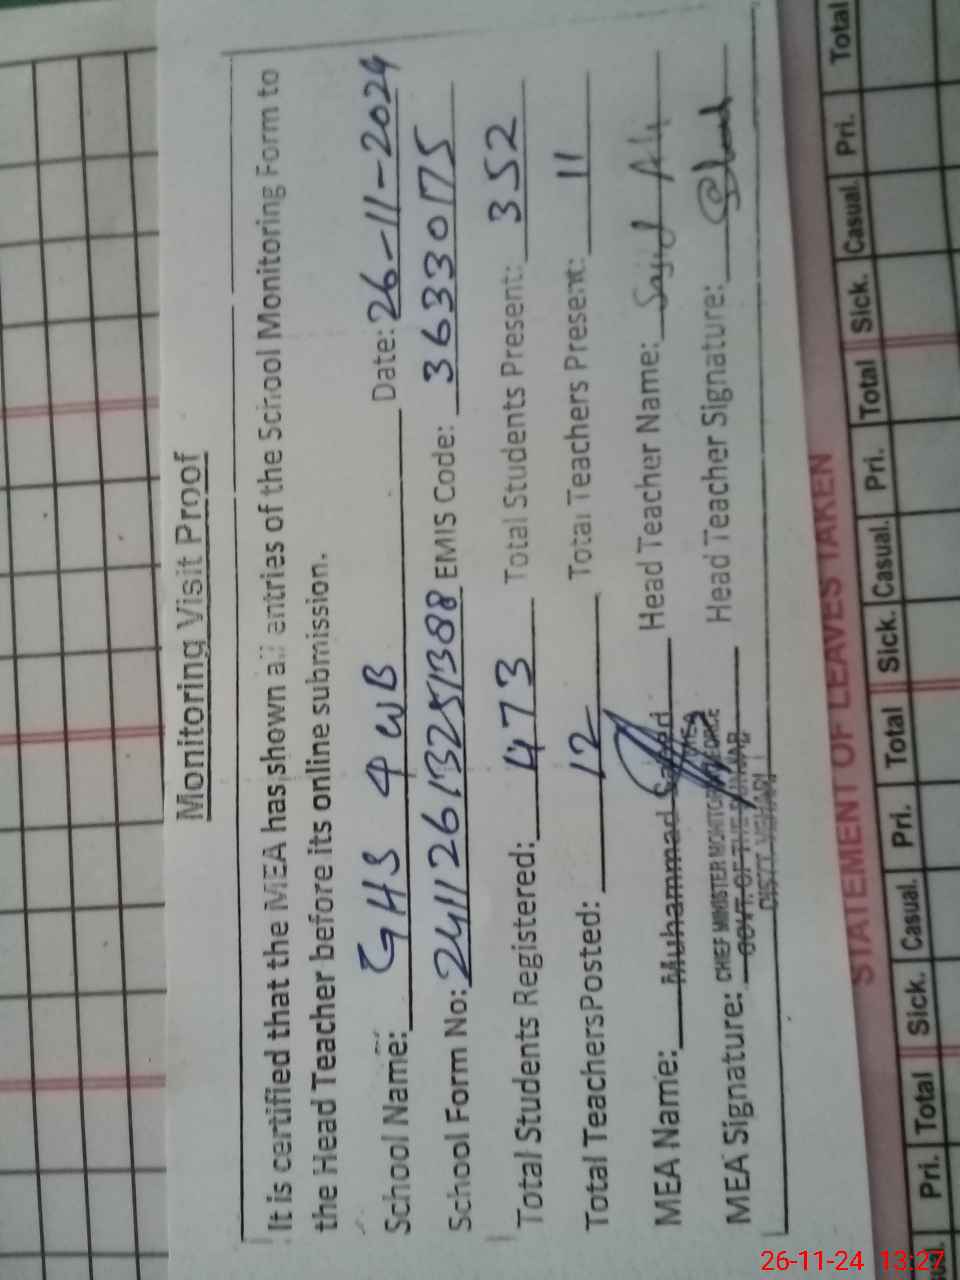 Monitoring Visit Proof
It is certified that the MEA has shown all entries of the School Monitoring Form to
the Head Teacher before its online submission.
School Name: GHS 4 WB Date: 26-11-2024
School Form No: 24112613251388 EMIS Code: 36330175
Total Students Registered: 473 Total Students Present: 352
Total Teachers Posted: 12 Total Teachers Present: 11
MEA Name: Muhammad Head Teacher Name: Sajid Ali
MEA Signature: Head Teacher Signature:
CHIEF MINISTER MONITORING FORCE
GOVT. OF THE PUNJAB
DISTT. VEHARI
STATEMENT OF LEAVES TAKEN
Pri. Total Sick. Casual. Pri. Total Sick. Casual. Pri. Total Sick. Casual. Pri. Total
26-11-24 13:27